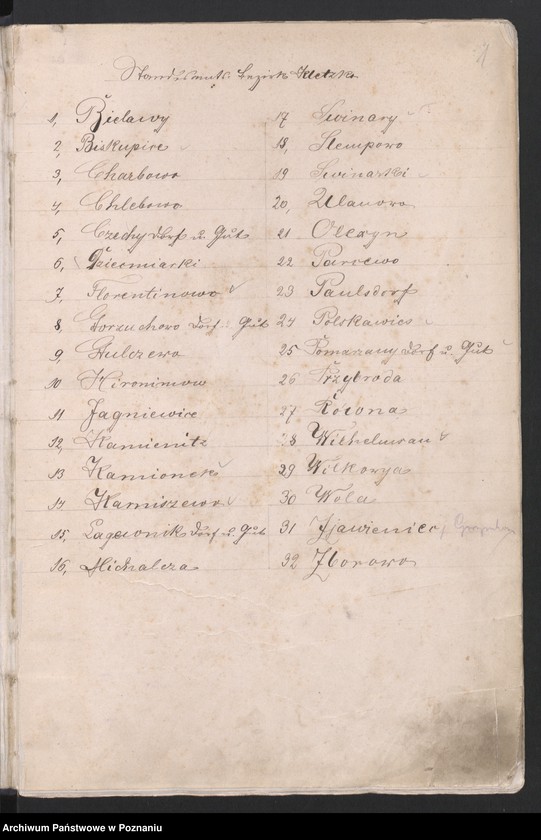 Standesamts Bezirk Kletzko
1, Bielawy
2, Biskupice
3, Charbowo
4, Chlebowo
5, Czechy Dorf u. Gut
6, Dziecmiarki
7, Florentinowo
8, Gorzuchowo Dorf u. Gut
9, Gulczewo
10 Hironimow
11 Jagniewice
12, Kamienitz
13 Kamionek
14 Karniszewo
15, Lagewonik Dorf u. Gut
16, Michalcza
17 Swinary
18, Stempowo
19 Swinarki
20, Ulanowo
21 Olexyn
22 Parcewo
23 Paulsdorf
24 Polskawies
25 Pomarzany Dorf u. Gut
26 Przybroda
27 Rozona
28 Wilhelmsau
29 Wilkowya
30 Wola
31 Zjawieniec
32 Zborowo
Archiwum Państwowe w Poznaniu